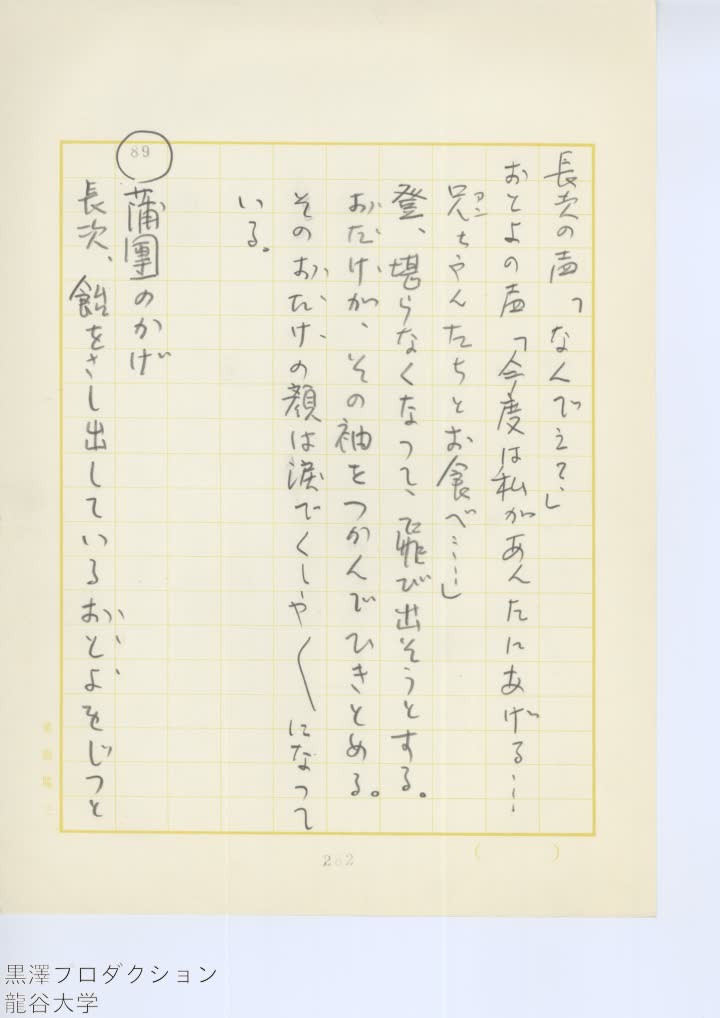 長次の声「なんでえ？」
おとよの声「今度は私があんたにあげる……
兄ちやんたちとお食べ……」
アン
登、堪らなくなって、飛び出そうとする。
おたけが、その袖をつかんでひきとめる。
そのおたけの顔は涙でくしや〱になって
いる。
89
蒲團のかげ
長次、飴をさし出しているおとよをじつと
262
黒澤プロダクション
龍谷大学